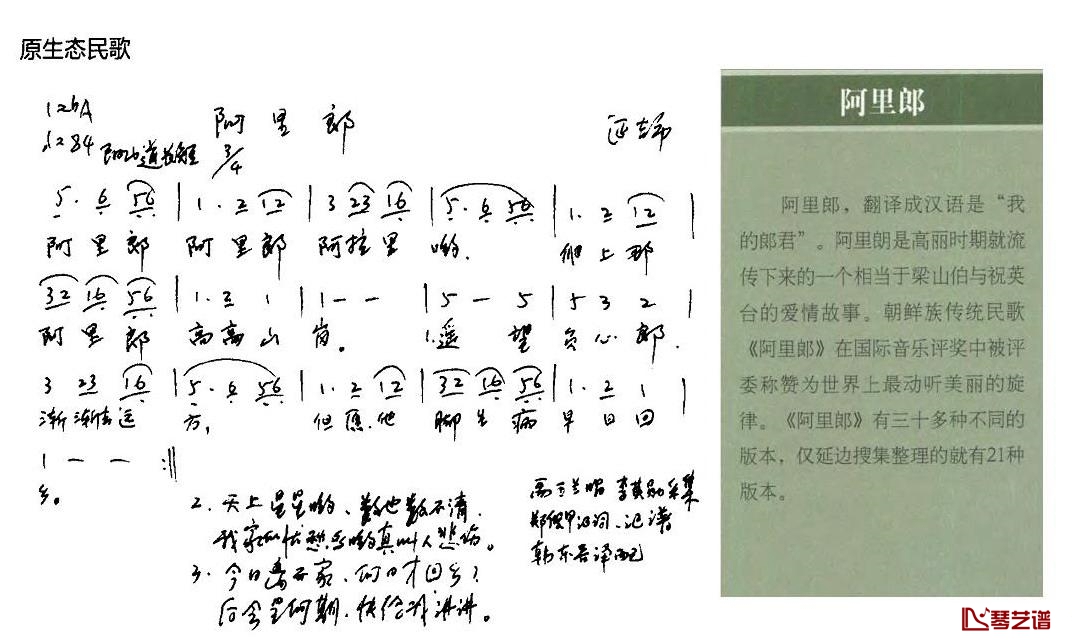 原生态民歌
1=bA
1=84
阿里郎
3/4
5. 6 56 | 1. 2 12 | 3 23 16 | 5. 6 56 | 1. 2 12 |
阿里郎 阿里郎 阿拉里 哟. 爬上那
32 16 56 | 1. 2 1 | 1 - - | 5 - 5 | 5 3 2 |
阿里郎 高高山岗。 1.遥望负心郎.
3 23 16 | 5. 6 56 | 1. 2 12 | 32 16 56 | 1. 2 1 |
渐渐去远方, 但愿他脚生病早日回
1 - - :||
乡。
2. 天上星星哟、数也数不清.
我家的忧愁哟真叫人悲伤。
3. 今日离开家.何日才回乡?
后会是何期.快给我讲讲。
采集
记谱
韩东吾译配
阿里郎
阿里郎，翻译成汉语是“我
的郎君”。阿里朗是高丽时期就流
传下来的一个相当于梁山伯与祝英
台的爱情故事。朝鲜族传统民歌
《阿里郎》在国际音乐评奖中被评
委称赞为世界上最动听美丽的旋
律。《阿里郎》有三十多种不同的
版本，仅延边搜集整理的就有21种
版本。
琴艺谱